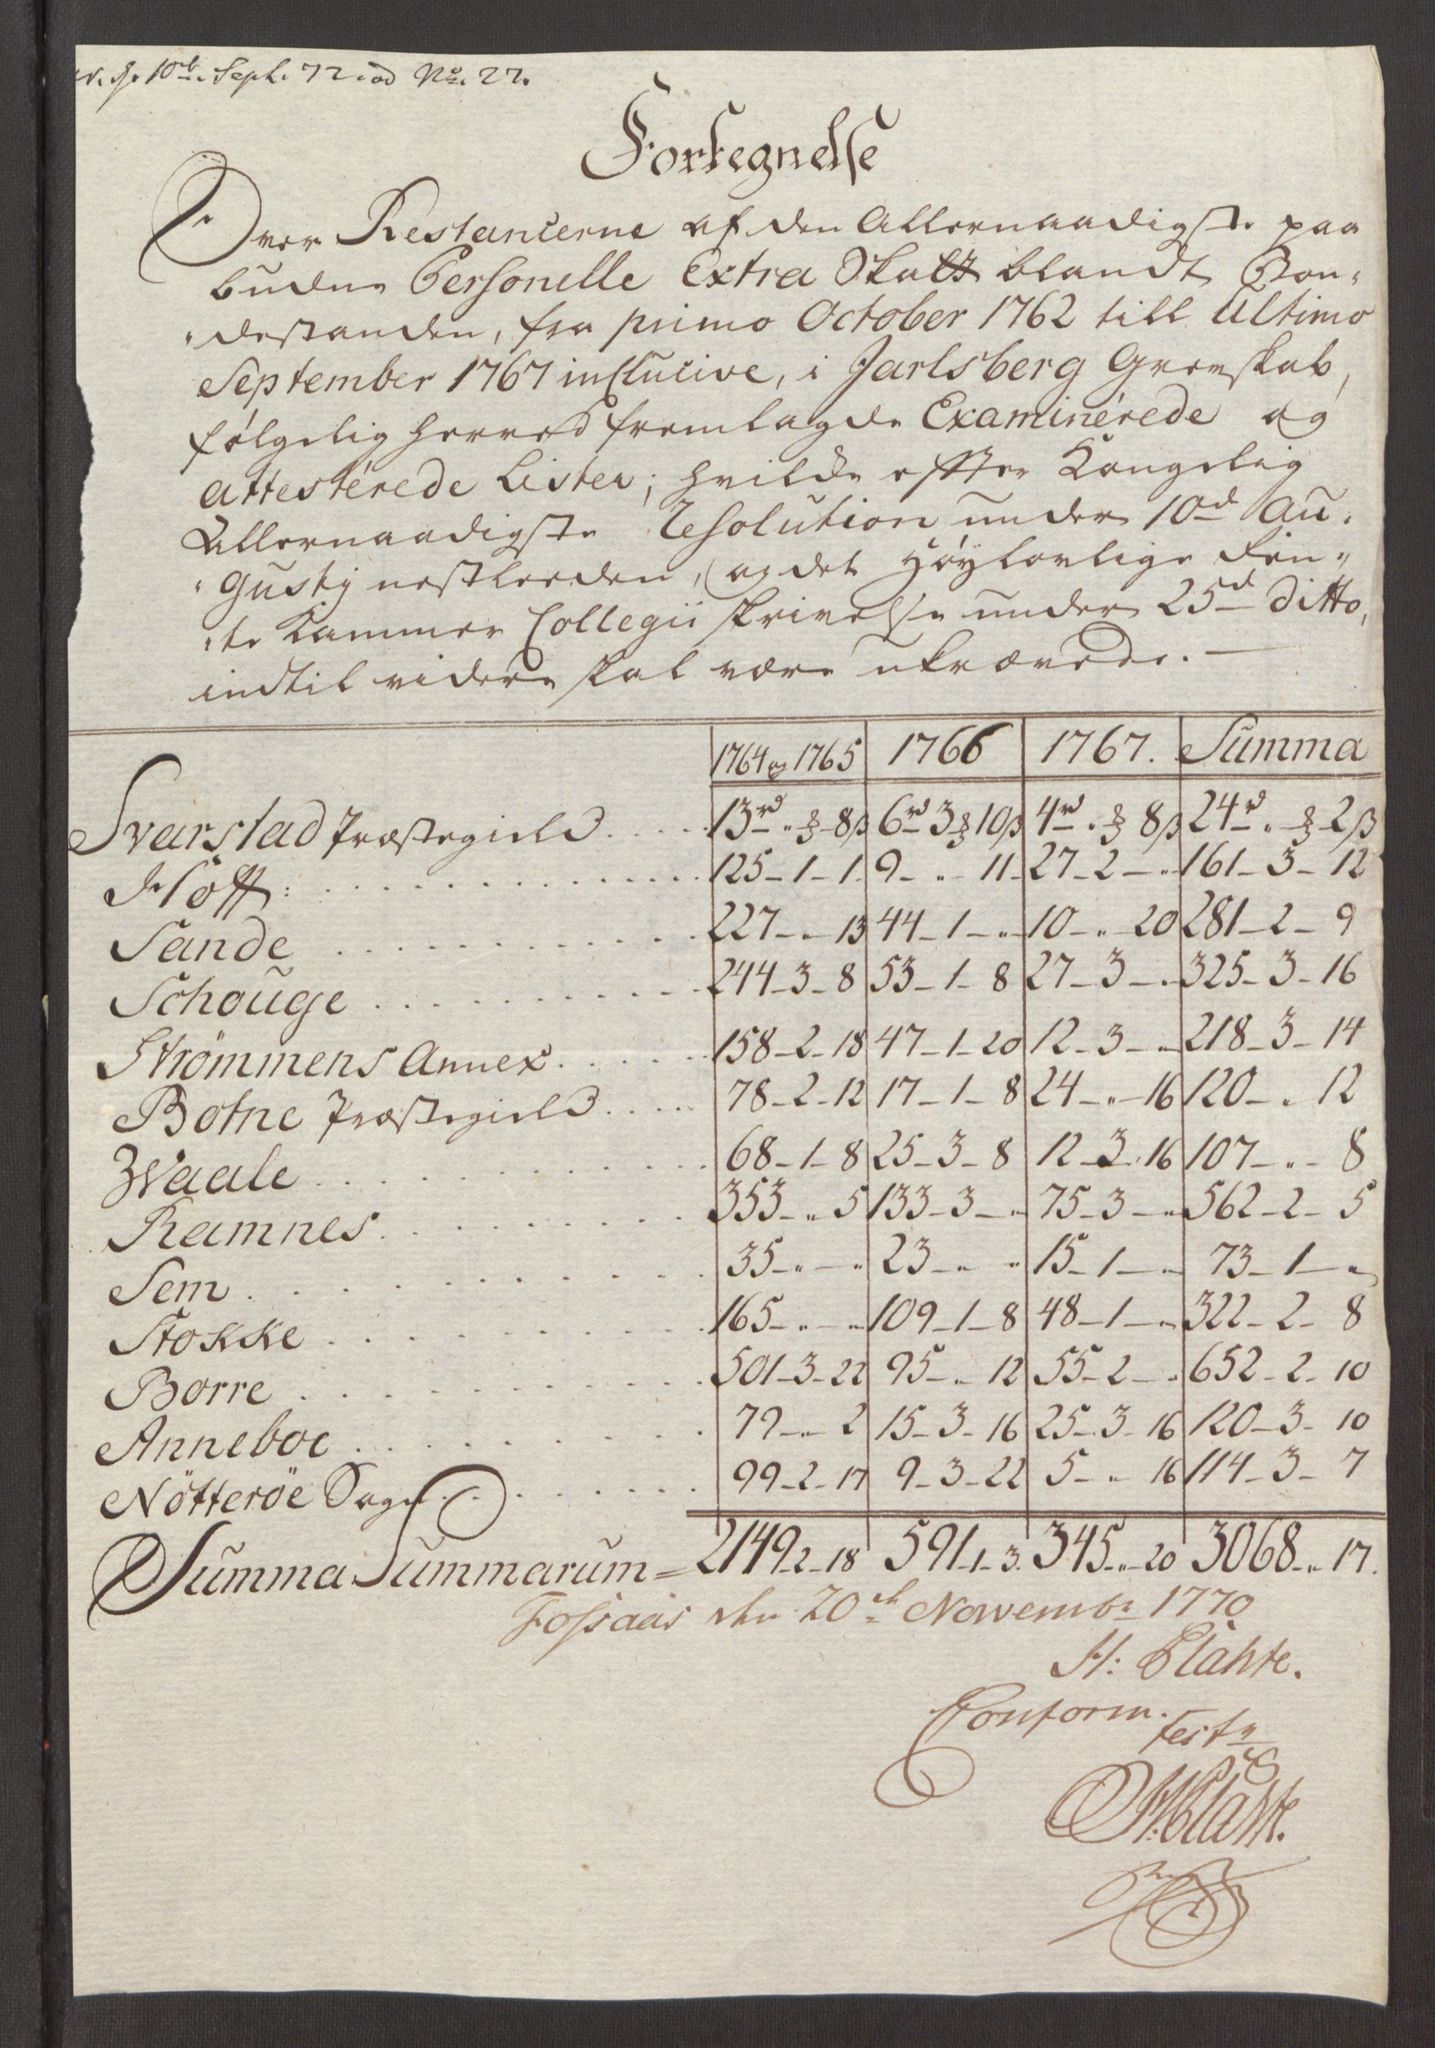 10de Sept. 72 ad No. 22.
Fortegnelse
Over Restancerne af den Allernaadigste paa
budne Personelle Extra Skatt blandt Bon-
destanden, fra primo October 1762 till Ultimo
September 1767 inclucive, i Jarlsberg Grevskab,
følgelig herved fremlagde Examinérede og
attestérede Lister; hvilke effter Kongelig
Allernaadigste Resolution under 10d Au-
gusty nestleeden, og det Høylovlige Ren-
te Kammer Collegii skrivelse under 25d ditto,
indtil videre skal være ukrævede. —
1764 og 1765 1766 1767. Summa
Svarstad Præstegield 13rd " ₰ 8β 6rd 3 ₰ 10β 4rd " ₰ 8β 24rd " ₰ 2β
Hoff: 125-1-1 9-"-11 27-2-" 161-3-12
Sande 227-"-13 44-1-" 10-"-20 281-2-9
Schouge 244-3-8 53-1-8 27-3-" 325-3-16
Strømmens Annex 158-2-18 47-1-20 12-3-" 218-3-14
Botne Præstegield 78-2-12 17-1-8 24-"-16 120-"-12
Waale 68-1-8 25-3-8 12-3-16 107-"-8
Ramnes 353-"-5 133-3-" 75-3-" 562-2-5
Sem 35-"-" 23-"-" 15-1-" 73-1-"
Stokke 165-"-" 109-1-8 48-1-" 322-2-8
Borre 501-3-22 95-"-12 55-2-" 652-2-10
Anneboe 79-"-2 15-3-16 25-3-16 120-3-10
Nötteröe Sogn 99-2-17 9-3-22 5-"-16 114-3-7
Summa Summarum = 2149-2-18 591-1-3 345-"-20 3068-"-17.
Fossaas den 20de Novembr 1770
H: Plahte.
Conform.
Teste
H: Plahte.